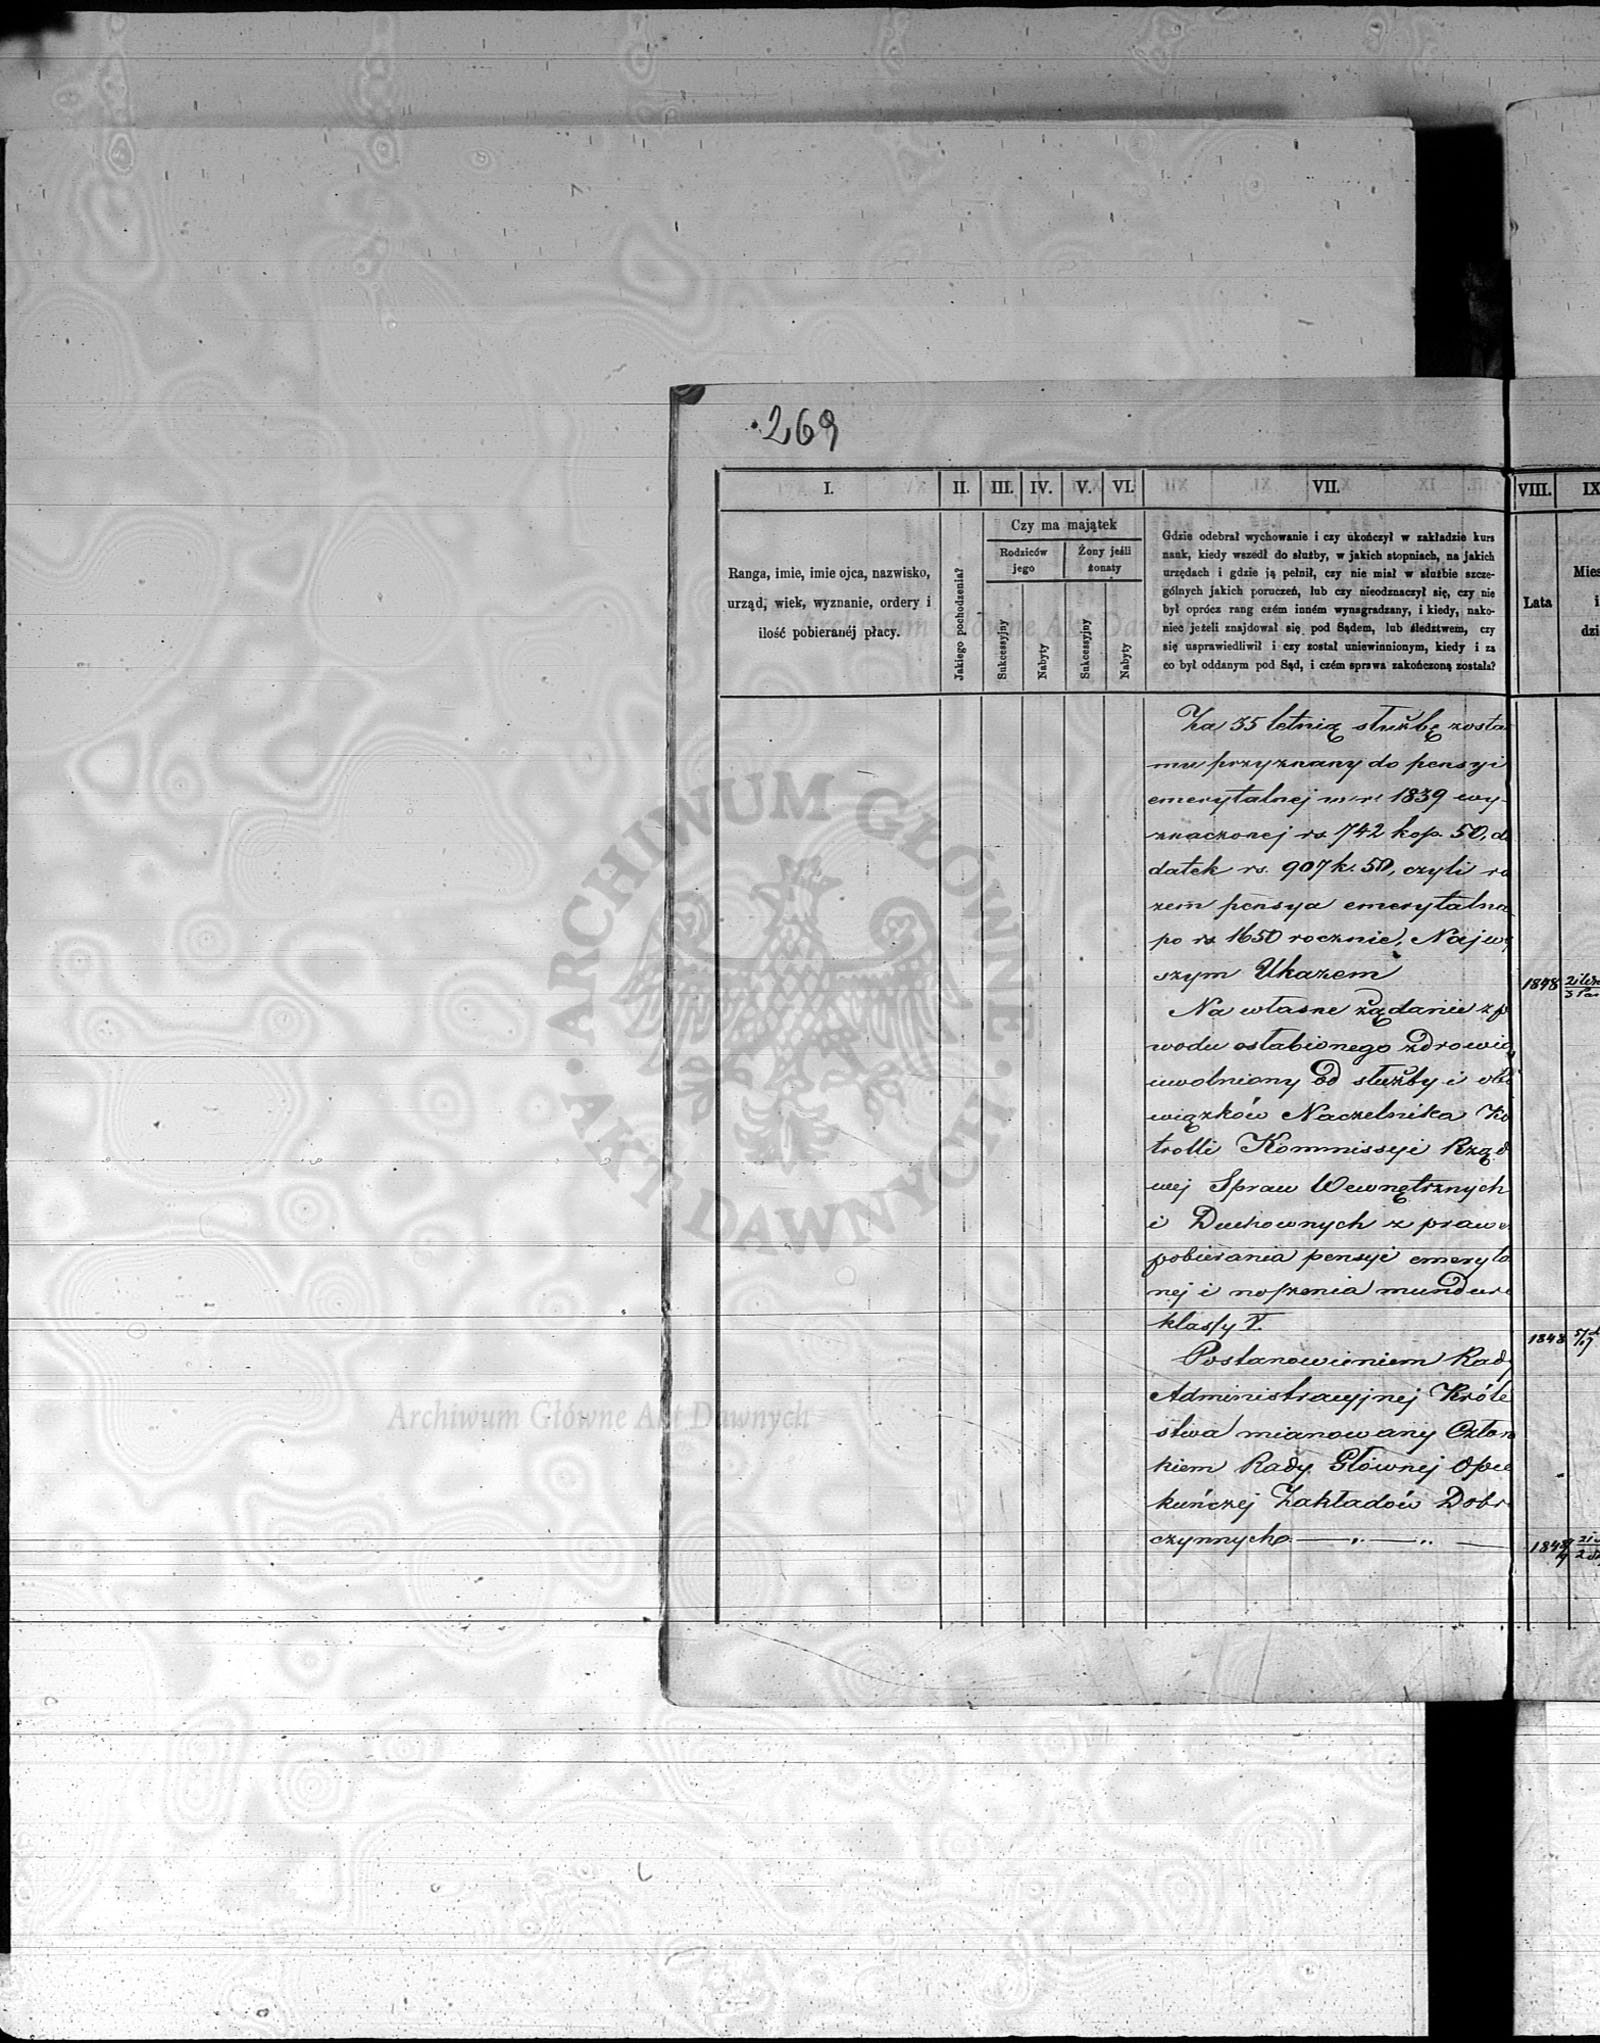 269
I. II. III. IV. V. VI. VII. VIII. IX
Ranga, imie, imie ojca, nazwisko,
urząd, wiek, wyznanie, ordery i
ilość pobieranéj płacy.
Jakiego pochodzenia?
Czy ma majątek
Rodziców
jego
Żony jeśli
żonaty
Sukcessyjny
Nabyty
Sukcessyjny
Nabyty
Gdzie odebrał wychowanie i czy ukończył w zakładzie kurs
nauk, kiedy wszedł do służby, w jakich stopniach, na jakich
urzędach i gdzie ją pełnił, czy nie miał w służbie szcze-
gólnych jakich poruczeń, lub czy nieodznaczył się, czy nie
był oprócz rang czém inném wynagradzany, i kiedy, nako-
niec jeżeli znajdował się pod Sądem, lub śledztwem, czy
się usprawiedliwił i czy został uniewinnionym, kiedy i za
co był oddanym pod Sąd, i czém sprawa zakończoną została?
Lata
Mies
i
dzi
Za 35 letnią służbę zosta
mu przyznany do pensyi
emerytalnej w r. 1839 wy-
znaczonej rs. 742 kop. 50, do
datek rs. 907 k. 50, czyli ra
zem pensya emerytalna
po rs 1650 rocznie, Najwy
szym Ukazem
1848
Na własne żądanie z po
wodu osłabionego zdrowia
uwolniony od służby i obo
wiązków Naczelnika Ko
trolli Kommissyi Rządo
wej Spraw Wewnętrznych
i Duchownych z prawe
pobierania pensyi emeryta
nej i noszenia mundur
klassy V.
1848
Postanowieniem Rady
Administracyjnej Króle
stwa mianowany Człon
kiem Rady Głównej Opie
kuńczej Zakładów Dobro
czynnych
ARCHIWUM GŁÓWNE
AKT DAWNYCH
Archiwum Główne Akt Dawnych